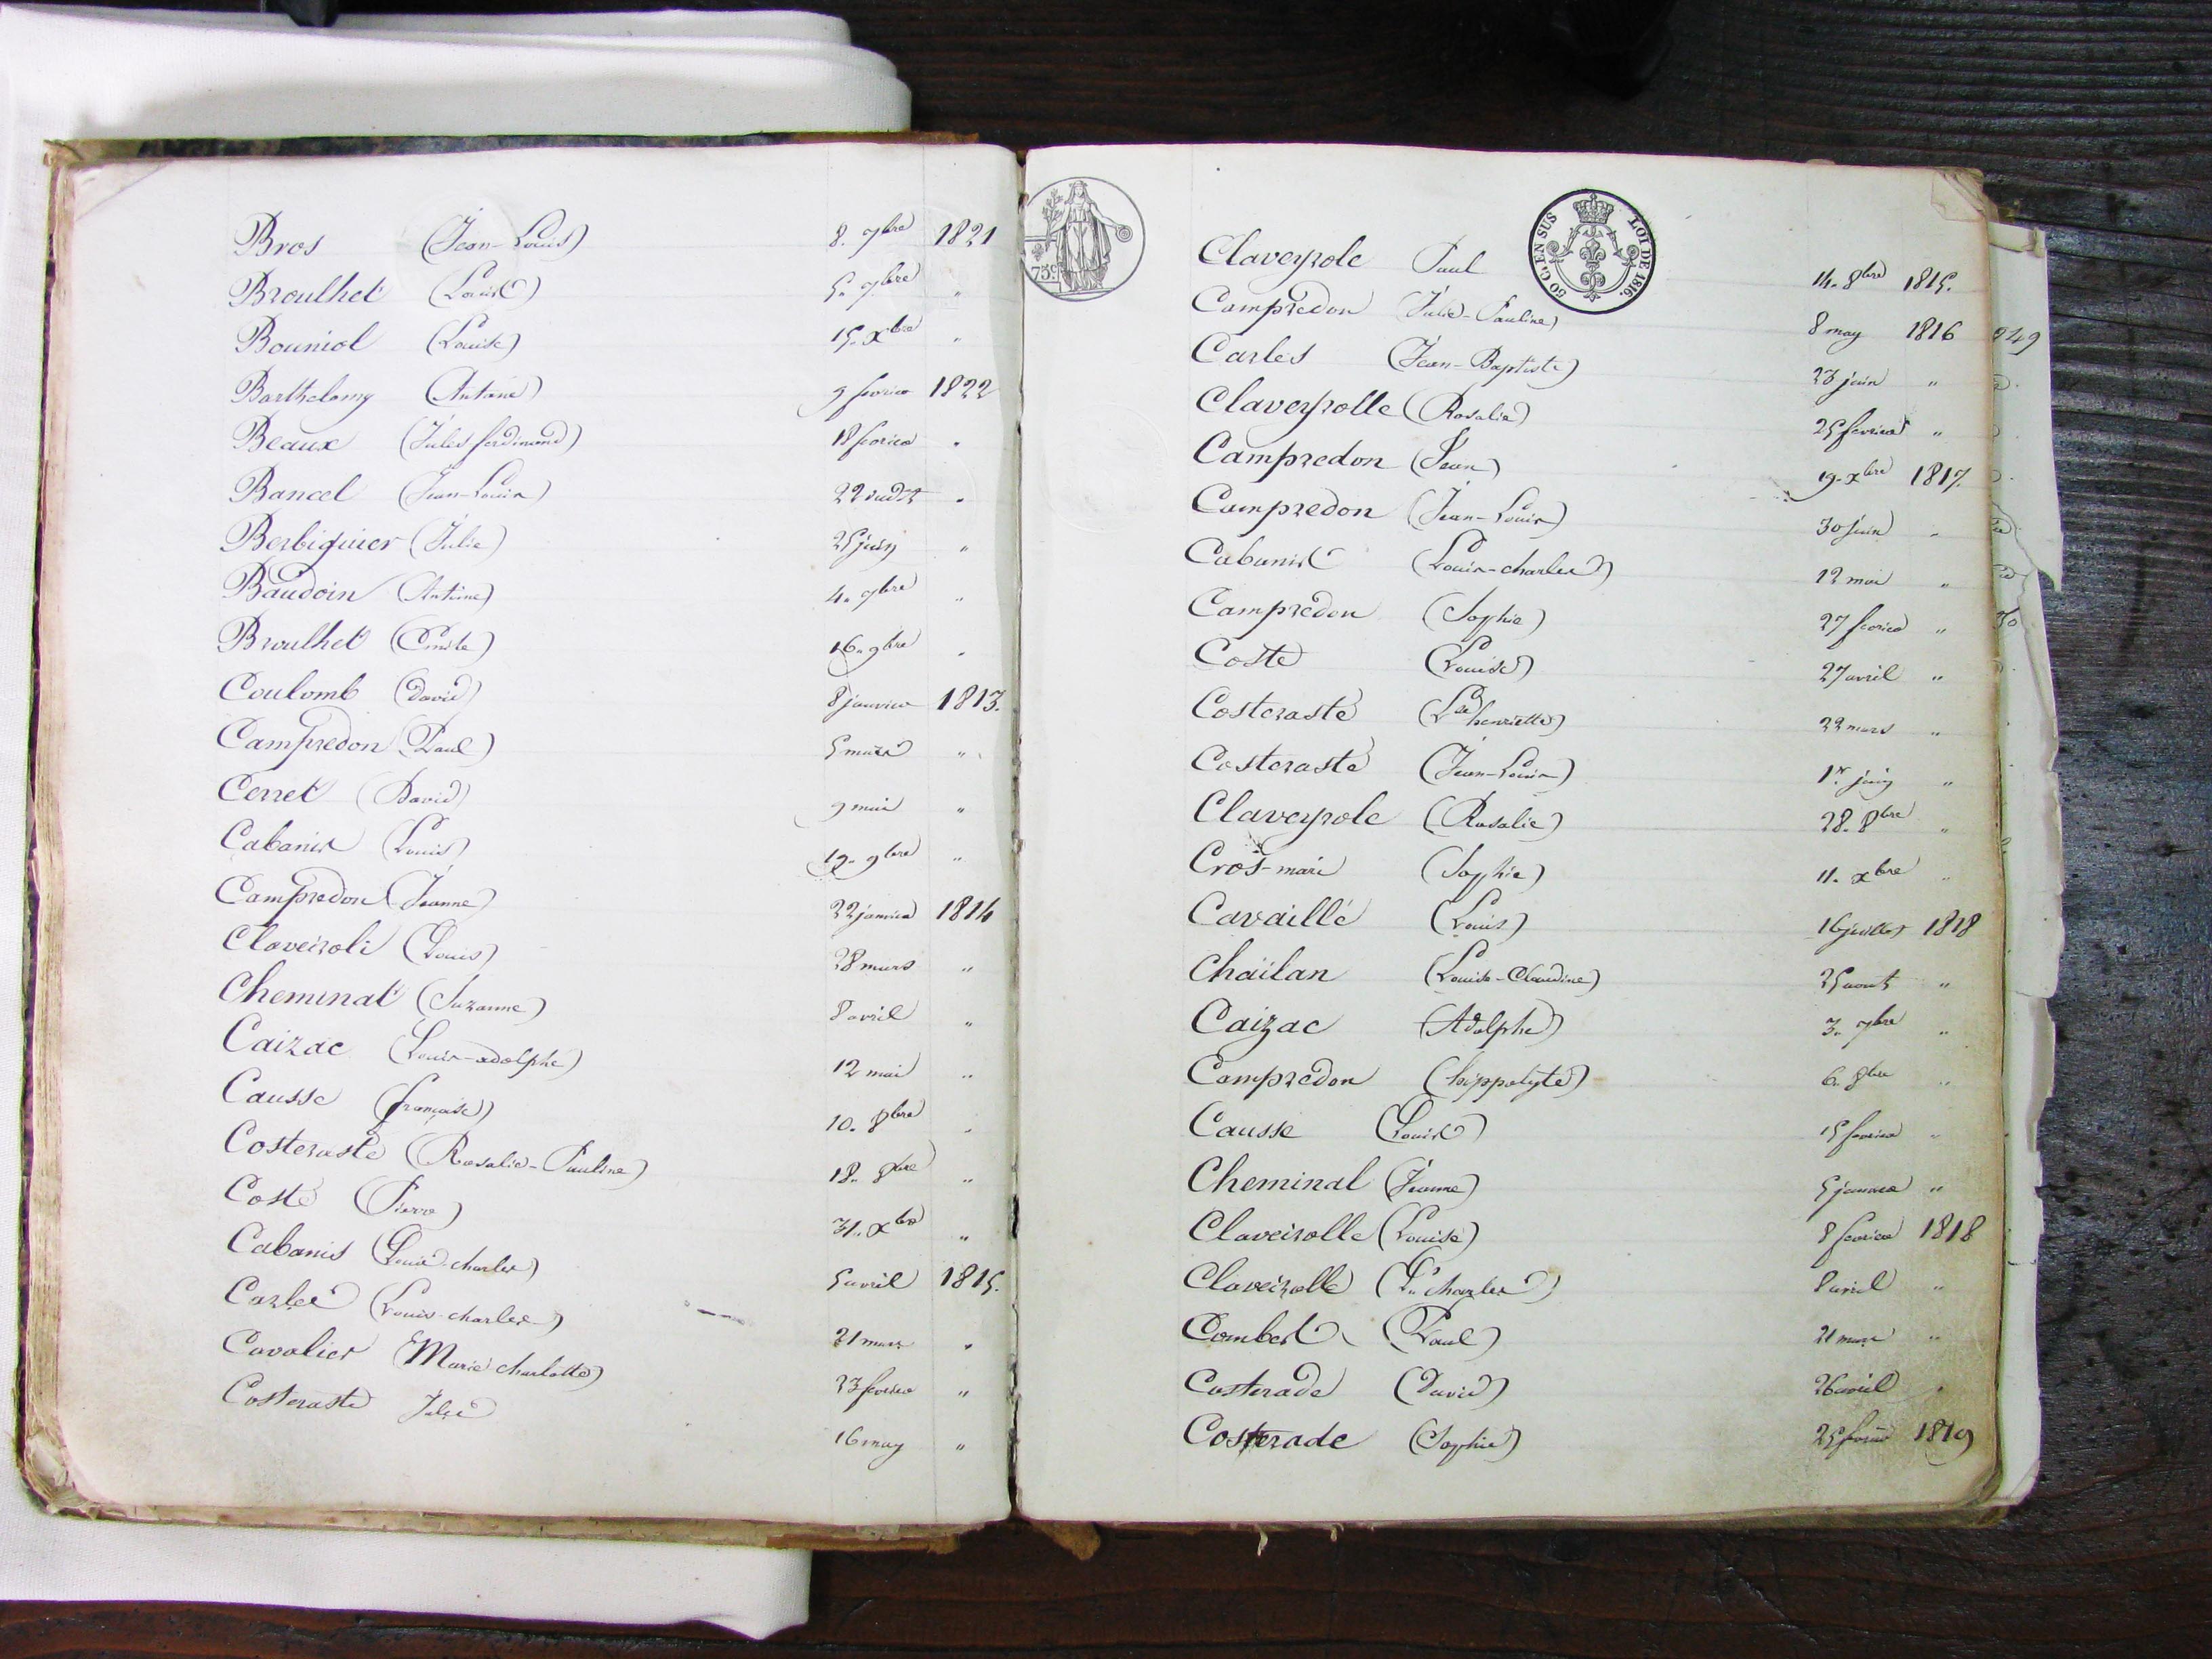 Bros (Jean-Louis) 8. 7bre 1821
Broulhet (Louis) 5. 7bre "
Bouniol (Louise) 15. Xbre "
Barthelemy (Antoine) 9 fevrier 1822
Beaux (Jules ferdinand) 18 fevrier "
Bancel (Jean-Louis) 22 "
Berbiguier (Julie) 25 juin "
Baudoin (Antoine) 4. 7bre "
Broulhet 16. 9bre "
Coulomb (David) 8 janvier 1813.
Campredon (Paul) 5 mars "
Cerret (David) 9 mai "
Cabanis (Louis) 19. 9bre "
Campredon (Jeanne) 22 janvier 1814
Claveiroli (Louis) 28 mars "
Cheminat (Suzanne) 8 avril "
Caizac (Louis-adolphe) 12 mai "
Causse (françoise) 10. 8bre "
Costeraste (Rosalie-Pauline) 18. 8bre "
Coste (Pierre) 31. Xbre "
Cabanis (Louis-charles) 5 avril 1815.
Carles (Louis-charles) 21 mars "
Cavalier (Marie charlotte) 23 fevrier "
Costeraste Julie 16 may "
75c
50 C. EN SUS LOI DE 1816.
Claveyrole Paul 14. 8bre 1815.
Campredon (Julie-Pauline) 8 may 1816
Carles (Jean-Baptiste) 23 juin "
Claveyrolle (Rosalie) 25 fevrier "
Campredon (Jean) 19. Xbre 1817.
Campredon (Jean-Louis) 30 juin "
Cabanis (Louis-charles) 12 mai "
Campredon (Sophie) 27 fevrier "
Coste (Louise) 27 avril "
Costeraste (Lse henriette) 22 mars "
Costeraste (Jean-Louis) 1er juin "
Claveyrole (Rosalie) 28. 8bre "
Cros-marie (Sophie) 11. Xbre "
Cavaillé (Louis) 16 juillet 1818
Chaïlan (Louise-Claudine) 25 aout "
Caizac (Adolphe) 3. 7bre "
Campredon (hippolyte) 6. 8bre "
Causse (Louis) 15 fevrier "
Cheminal (Jeanne) 5 janvier "
Claveirolle (Louise) 8 fevrier 1818
Claveirolle (Ls charles) 8 avril "
Combert (Paul) 21 mars "
Costerade (David) 26 avril "
Costerade (Sophie) 25 fevrier 1819